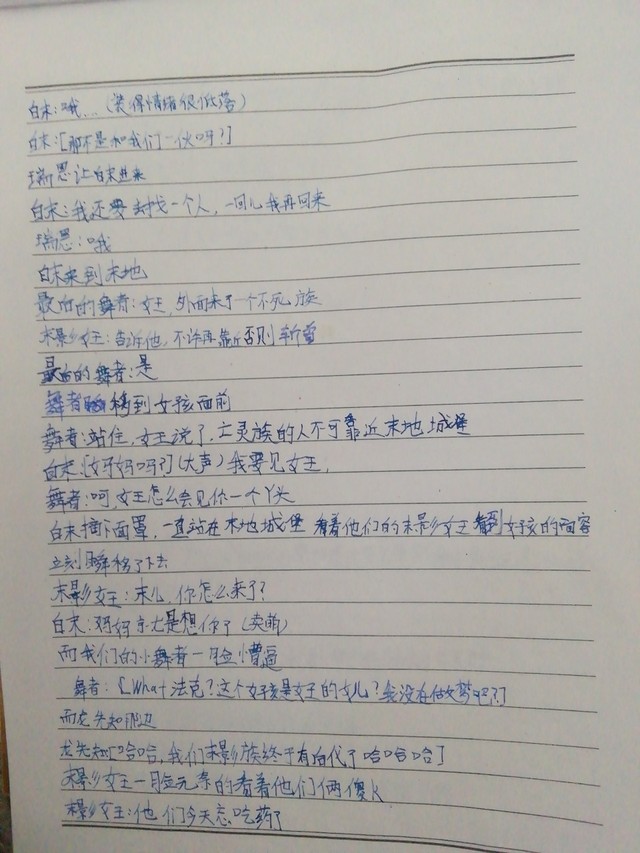 白末:哦...(装得情绪很低落)
白末:[那不是和我们一伙吗?]
瑞恩让白末进来
白末:我还要去找一个人,一回儿我再回来
瑞恩:哦
白末来到末地
最白的舞者:女王,外面来了一个不死族
末影女王:告诉他,不许再靠近否则斩首
最白的舞者:是
舞者瞬移到女孩面前
舞者:站住,女王说了,亡灵族的人不可靠近末地城堡
白末:[女牙妈吗?](大声)我要见女王,
舞者:呵,女王怎么会见你一个丫头
白末摘下面罩,一直站在末地城堡看着他们的末影女王看到女孩的面容
立刻瞬移了下去
末影女王:末儿,你怎么来了?
白末:妈妈末尤是想你了(卖萌)
而我们的小舞者一脸懵逼
舞者:[What法克?这个女孩是女王的女儿?我没在做梦吧?]
而龙先知那边
龙先知[哈哈,我们末影族终于有后代了哈哈哈]
末影女王一脸无奈的看着他们俩傻
末影女王:他们今天忘吃药了